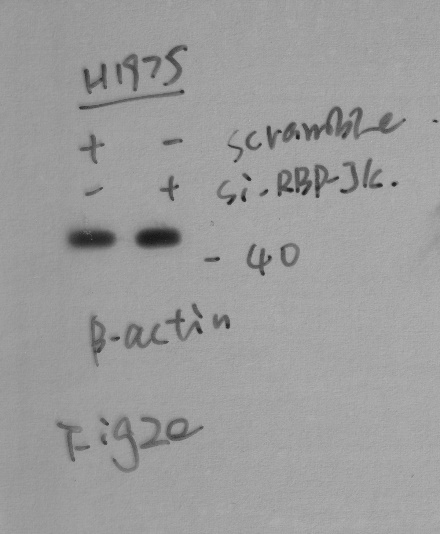 H1975
+ - scramble
- + si-RBP-Jk.
- 40
β-actin
Fig2e